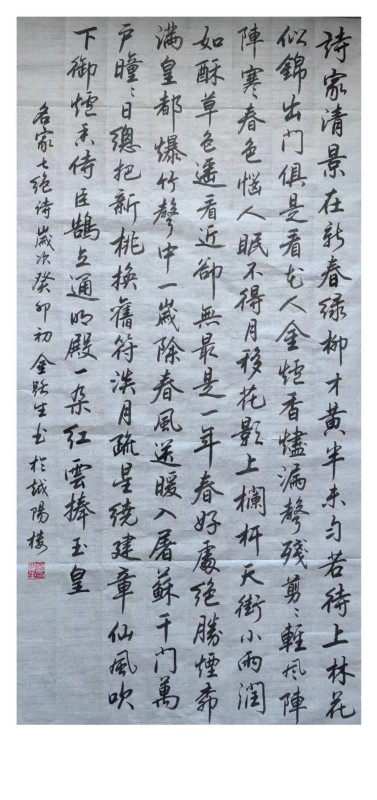 詩家清景在新春綠柳才黃半未勻若待上林花
似錦出門俱是看花人金爐香燼漏聲殘剪〻輕風陣
陣寒春色惱人眠不得月移花影上欄杆天街小雨潤
如酥草色遥看近卻無最是一年春好處絕勝煙柳
滿皇都爆竹聲中一歲除春風送暖入屠蘇千門萬
户曈〻日總把新桃換舊符淡月疏星繞建章仙風吹
下御爐香侍臣鵠立通明殿一朵紅雲捧玉皇
名家七絕詩歲次癸卯初金跃生书於越陽樓